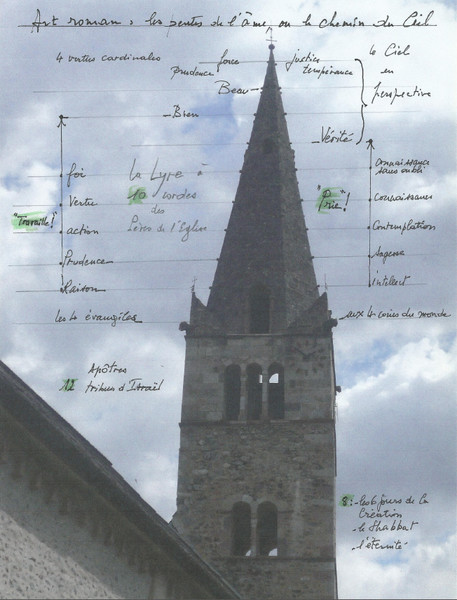 Art roman : les pentes de l'âme, ou le chemin du Ciel
4 vertus cardinales
force
justice
prudence
tempérance
le Ciel
en
perspective
Beau
Bien
Vérité
foi
Vertu
"Travaille!"
action
Prudence
Raison
la Lyre à
10 cordes
des
Pères de l'Eglise
"Prie"!
connaissance
sans oubli
connaissance
Contemplation
Sagesse
intellect
les 4 évangiles
aux 4 coins du monde
12
Apôtres
tribus d'Israël
8 : - les 6 jours de la
Création
- le Shabbat
- l'éternité